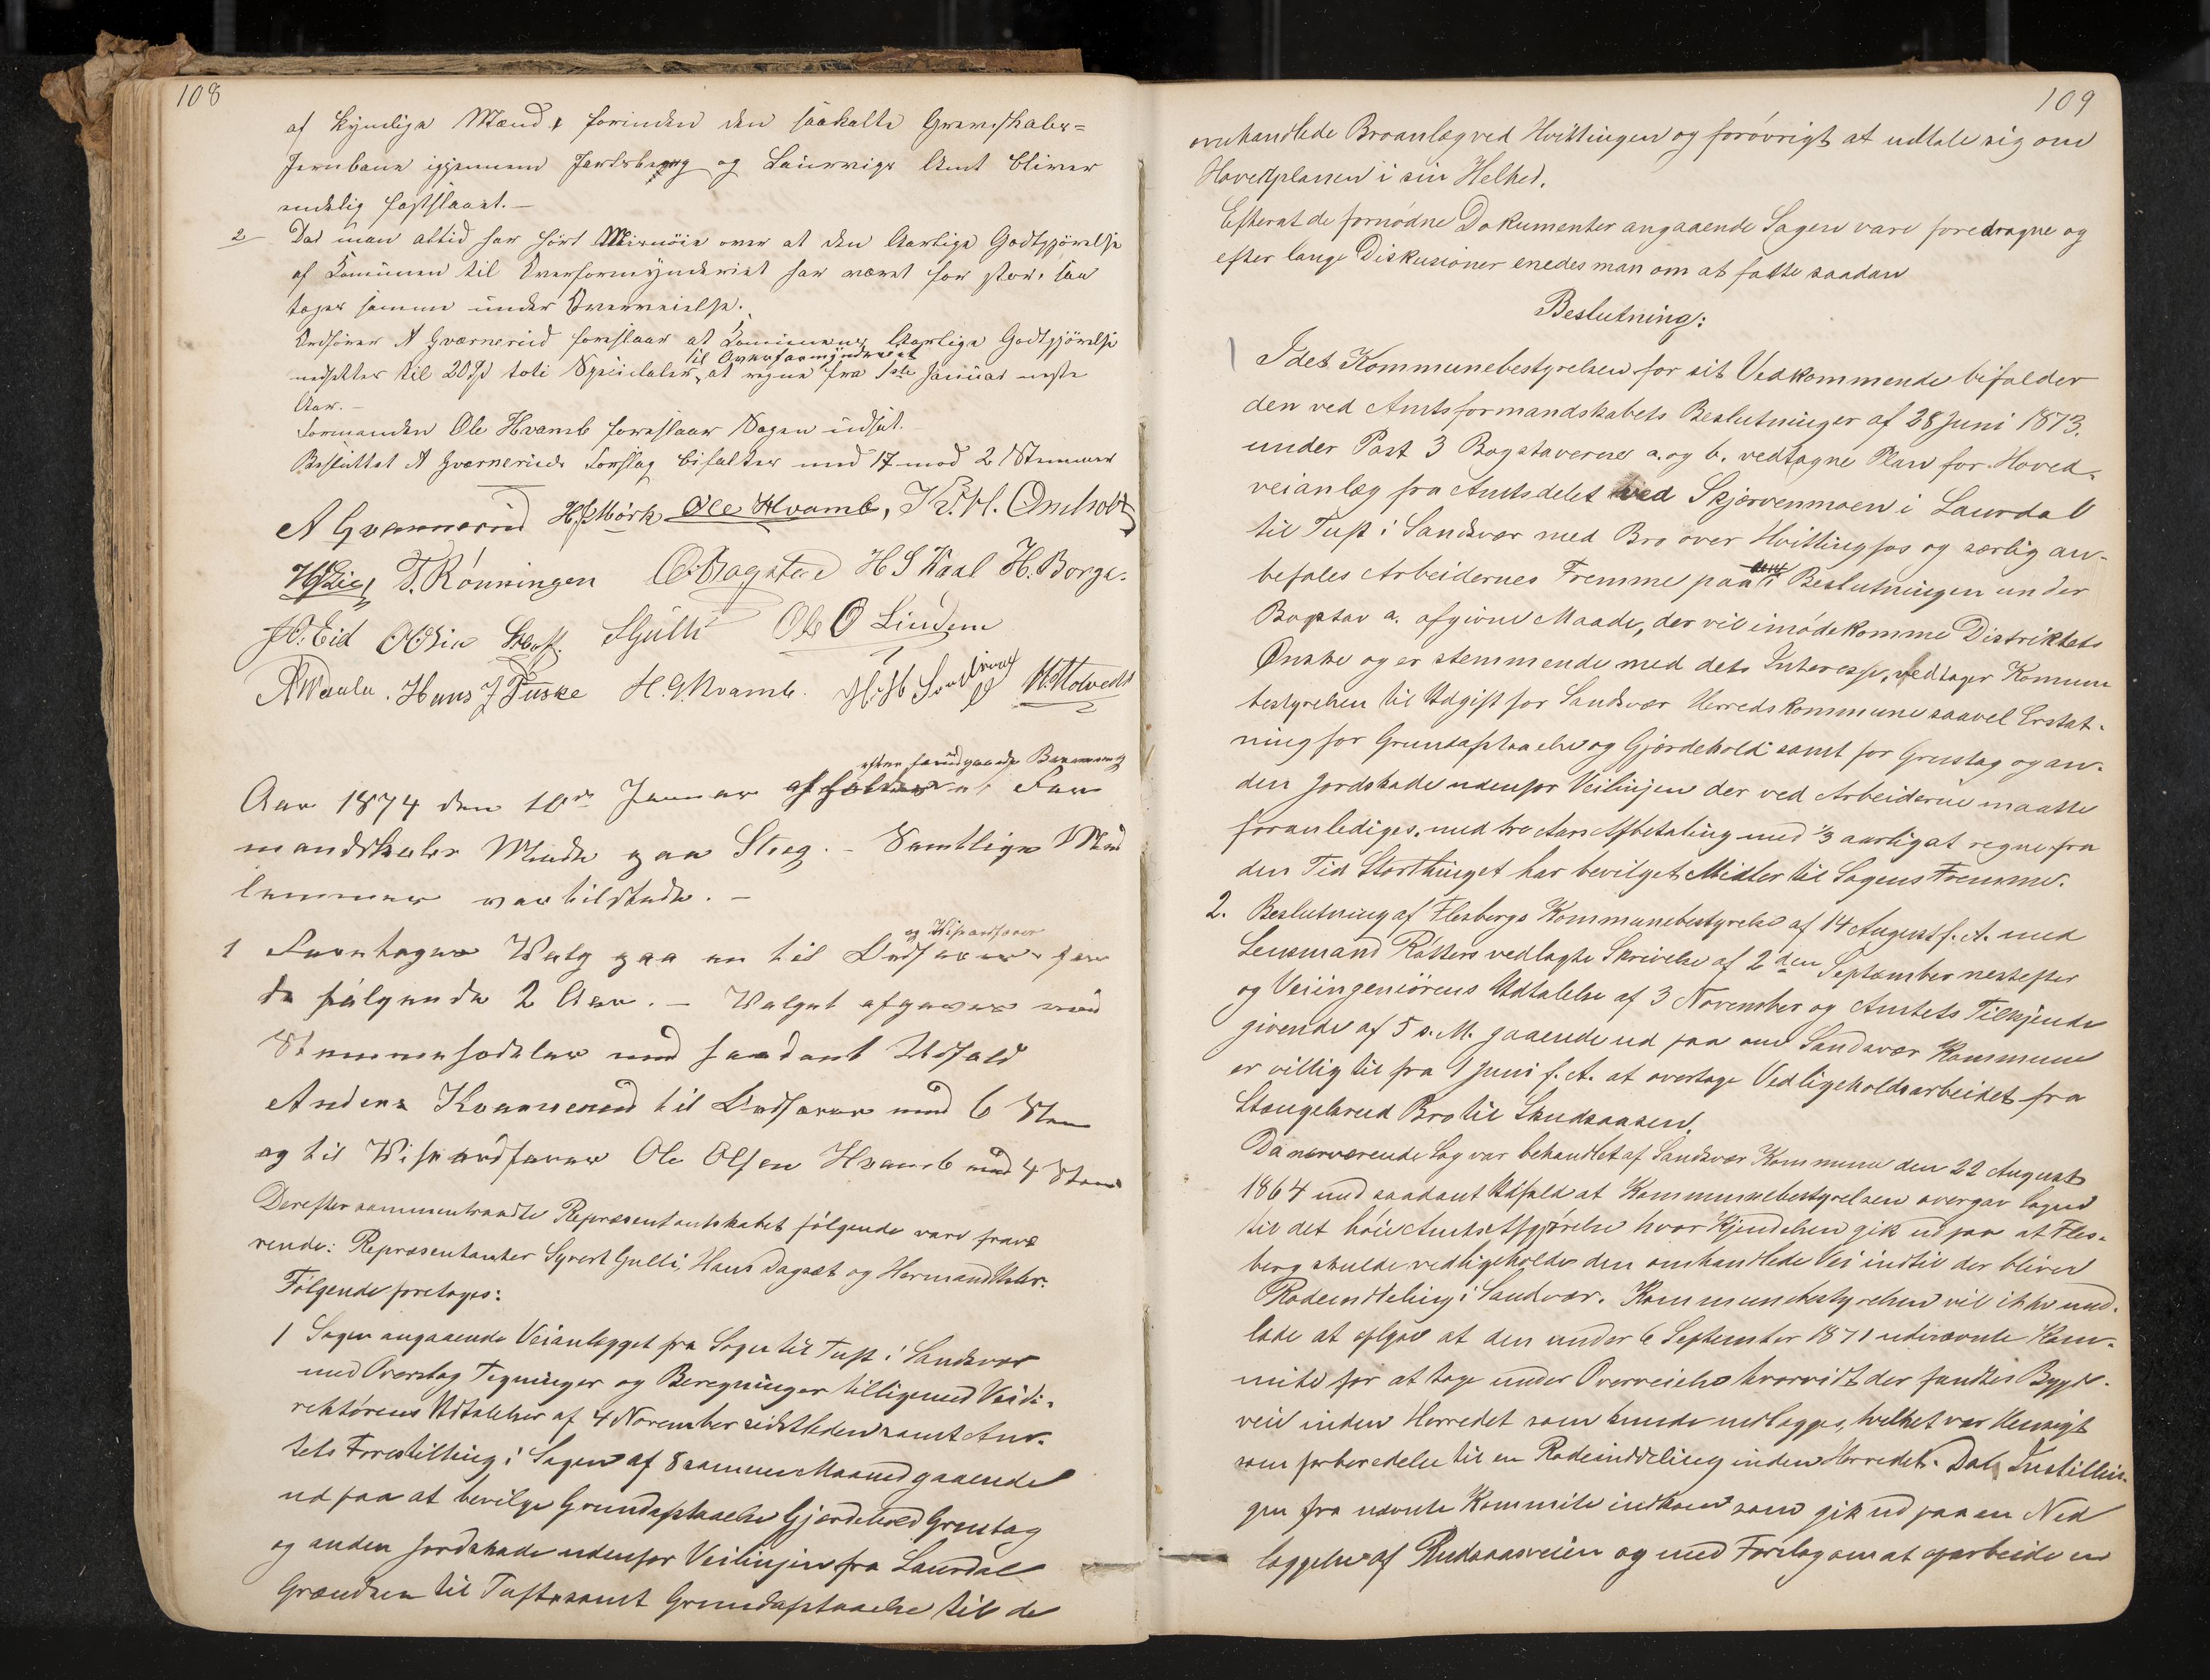 108
af kyndige Mænd, forinden den saakalte Grevskabs=
Jernbane igjennem Jarlsberg og Laurvigs Amt bliver
endelig fastslaaet. —
2 Da man altid har hørt Misnöie over at den Aarlige Godtgjörelse
af Comunen til Overformynderiet har været for stor, saa
toges samme under Overveielse.
Ordfører A Gværnerud foreslaar at Comunens Aarlige Godtgjörelse
til Overformynderiet
nedsættes til 20 Spd toti Speciedaler, at regne fra 1ste Januar neste
Aar. —
Formanden Ole Hvamb foreslaar Sagen udsat.
Besluttet A Gværneruds Forslag bifaltes med 17 mod 2 Stemmer
A Gværnerud H. Mörk Ole Hvamb, K. H. Omholt
T. Rönningen H S Kaal H. Borge.
J. Eid Ole O Lindem
Hans J Tuske H. G. Kvamb.
efter forudgaaende Berammelse
Aar 1874 den 10de Januar afholdtes For
mandskabs Möde paa Steg. — Samtlige Med
lemmer var tilstede. —
og Viseordfører
1 Foretages Valg paa en til Ordfører for
de fölgende 2 Aar. — Valget afgaves med
Stemmesedler med saadant Udfald
Anders Kværnerud til Ordfører med 6 Stem
og til Viseordfører Ole Olsen Hvamb med 4 Stem
Derefter sammentraadte Repræsentantskabet følgende vare fravæ
rende: Repræsentanter Syvert Gulli, Hans Dagsæt og Herman
Fölgende foretages:
1 Sagen angaaende Veianlægget fra Sagen til Tuft i Sandsvær
med Overslag Tegninger og Beregninger tilligemed Veidi-
rektørens Udtalelser af 4 November sidstleden samt Am-
tets Forestilling i Sagen af 8 samme Maaned gaaende
ud paa at bevilge Grundafstaaelse Gjerdehold Grustag
og anden Jordskade udenfor Veilinjen fra Laurdal
Grændsen til Tuft, samt Grundafstaaelse til de
109
omhandlede Broanlæg ved Hvittingen og forövrigt at udtale sig om
Hovedplanen i sin Helhed.
Efterat de fornödne Dokumenter angaaende Sagen vare foredragne og
efter lange Diskusioner enedes man om at fatte saadan
Beslutning:
Idet Kommunebestyrelsen for sit Vedkommende bifalder
den ved Amtsformandskabets Beslutninger af 28 Juni 1873.
under Post 3 Bogstaverne a. og b. vedtagne Plan for Hoved-
veianlæg fra Amtsdelet ved Skjærvenmoen i Laurdal
til Tuft i Sandsvær med Bro over Hvittingfos og særlig an-
befales Arbeidernes Fremme paa i Beslutningen under
Bogstav a. afgivne Maade, der vil imödekomme Distriktets
Önske og er stemmende med dets Interesse, vedtager Komune
bestyrelsen til Udgift for Sandsvær Herredskommune saavel Erstat-
ning for Grundafstaaelse og Gjerdehold samt for Grustag og an-
den Jordskade udenfor Veilinjen der ved Arbeiderne maatte
foranlediges, med tre Aars Afbetaling med 1/3 aarlig at regne fra
den Tid Storthinget har bevilget Midler til Sagens Fremme.
2. Beslutning af Flesbergs Kommunebestyrelse af 14 August f. A. med
Lensmand Råtters vedlagte Skrivelse af 2den September nestefter
og Veiingeniörens Udtalelse af 3 November og Amtets Tilkjende
givende af 5 s. M. gaaende ud paa om Sandsvær Kommune
er villig til fra 1 Juni f. A. at overtage Vedligeholdsarbeidet fra
Stengelsrud Bro til Skudsaasen.
Da nærværende Sag var behandlet af Sandsvær Kommune den 22 August
1864 med saadant Udfald at Kommunebestyrelsen overgav Sagen
til det höie Amts Afgjörelse hvor Kjendelsen gik ud paa at Fles-
berg skulde vedligeholde den omhandlede Vei indtil der bliver
Rodeinddeling i Sandsvær. Kommunebestyrelsen vil ikke und-
lade at oplyse at den under 6 September 1871 udnævnte Kom-
mite for at tage under Overveielse hvorvidt der fandtes Bygde-
veie inden Herredet som kunde nedlægges, hvilket var Hensigt
som forberedelse til en Rodeinddeling inden Herredet. Da Instillin-
gen fra nævnte Kommite indkom som gik ud paa en Ned
læggelse af Rudsaasveien og med Forslag om at oparbeide en